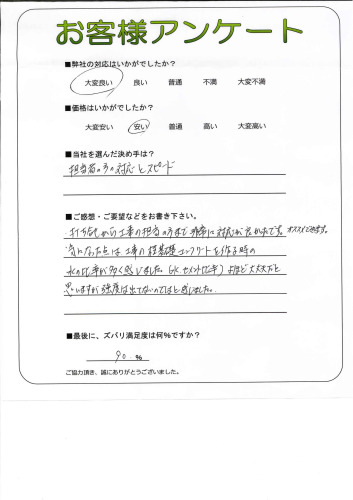 お客様アンケート
■弊社の対応はいかがでしたか？
大変良い 良い 普通 不満 大変不満
■価格はいかがでしたか？
大変安い 安い 普通 高い 大変高い
■当社を選んだ決め手は？
担当者の方の対応とスピード
■ご感想・ご要望などをお書き下さい。
打ち合わせから工事の担当の方まで 非常に対応が良かったです。オススメできます。
気になった点は、工事の 基礎コンクリートを作る時の
水の比率が多く感じました。(水セメント比率) よほど大丈夫だと
思いますが強度は出てないのではと感じました。
■最後に、ズバリ満足度は何％ですか？
90 %
ご協力頂き、誠にありがとうございました。